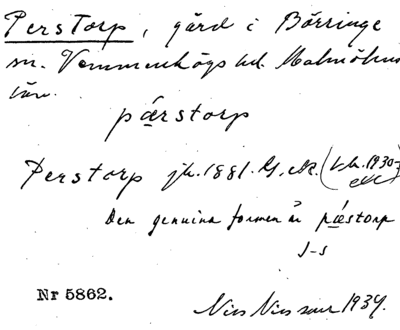 Perstorp, gård i Börringe
sn. Vemmenhögs hd. Malmöhus
län.
pǽrstorp
Perstorp jb. 1881. G. eK. (l.h. 1930
eK)
Den genuina formen är pǽstorp
J-s
Nr 5862.
Nils Nilsson 1934.